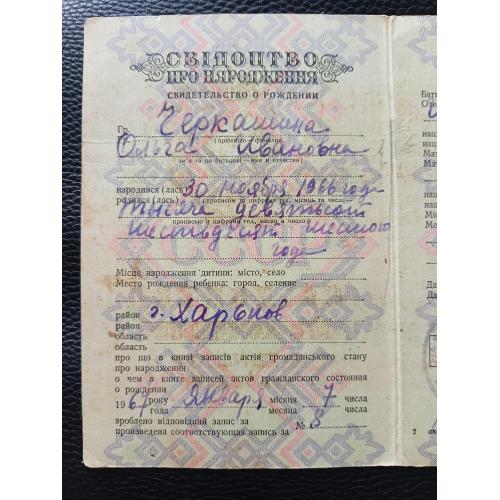 СВІДОЦТВО
ПРО НАРОДЖЕННЯ
СВИДЕТЕЛЬСТВО О РОЖДЕНИИ
Гр. Черкашина
(прізвище — фамилия)
Ольга Ивановна
ім'я та по батькові — имя и отчество)
народився (лась) 30 ноября 1966 года
родился (лась)
тысяча девятьсот
прописью и цифрами год, месяц и число)
шестьдесят шестого
года
Місце народження дитини: місто, село
Место рождения ребенка: город, селение
район г. Харьков
район
область
область
про що в книзі записів актів громадянського стану
про народження
о чем в книге записей актов гражданского состояния
о рождении
196 року января місяця 7 числа
года месяца числа
зроблено відповідний запис за № 8
произведена соответствующая запись за
2
Бать
Оте
нац
нац
Мат
Мат
нац
нац
Да
Да